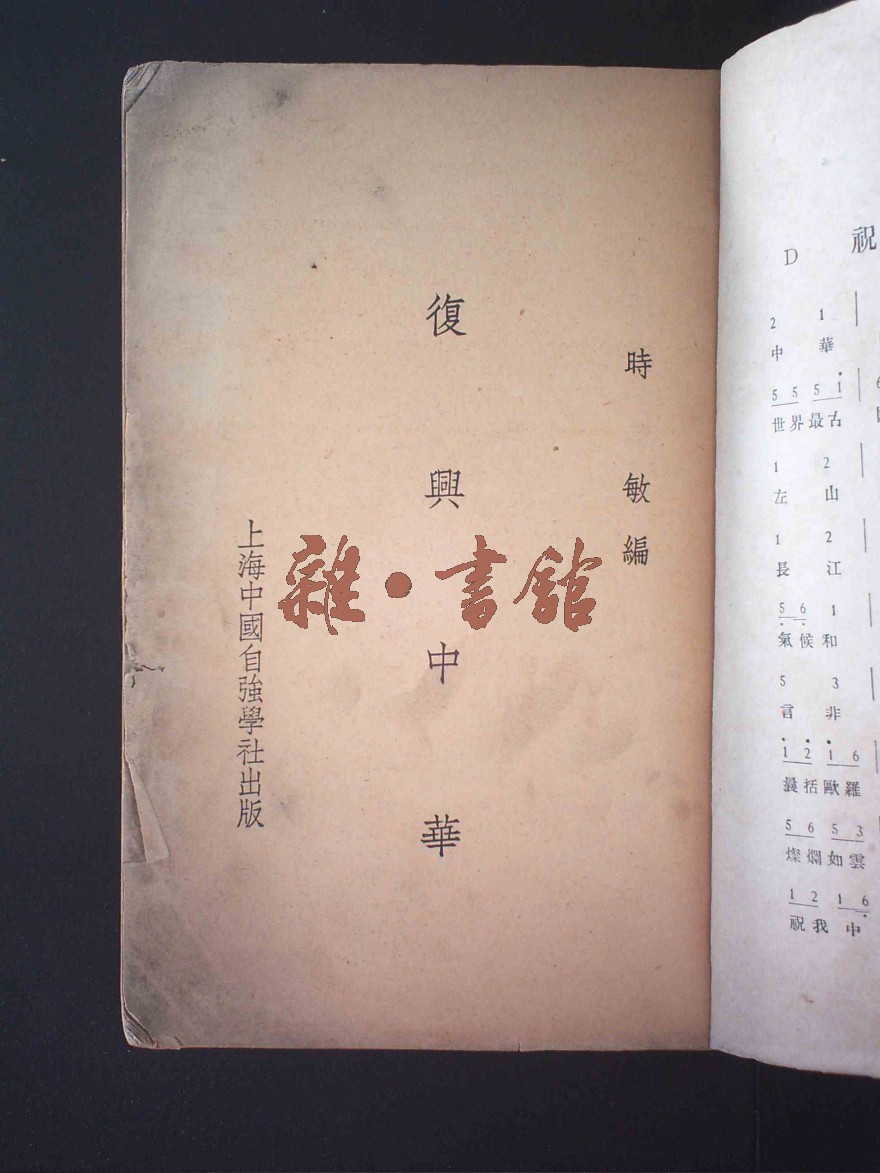 時敏編
復興中華
上海中國自強學社出版
雜·書館
祝
D
2 1
中華
5 5 5 1
世界最古
1 2
左山
1 2
長江
5 6 1
氣候和
5 3
言非
1 2 1 6
括歐羅
5 6 5 3
燦爛如雲
1 2 1 6
祝我中